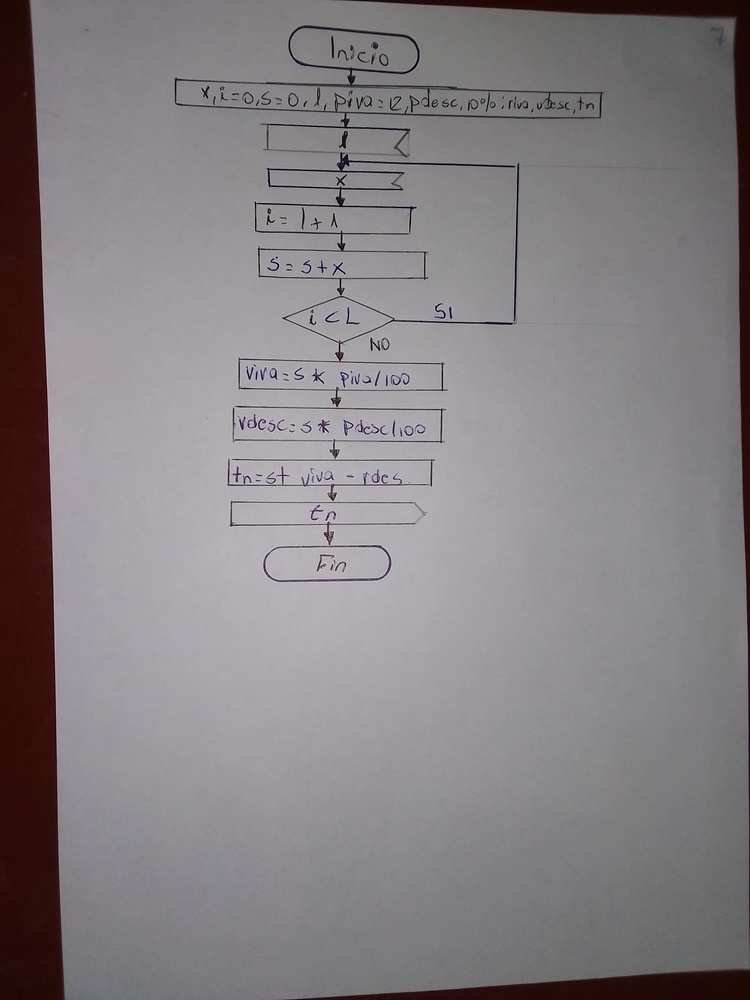 7
Inicio
x, i=0, s=0, l, piva=12, pdesc, 10% : riva, vdesc, tn
l
x
i = l + 1
s = s + x
i < L
SI
NO
viva = s * piva/100
vdesc = s * pdesc/100
tn = st viva - rdes
tn
Fin